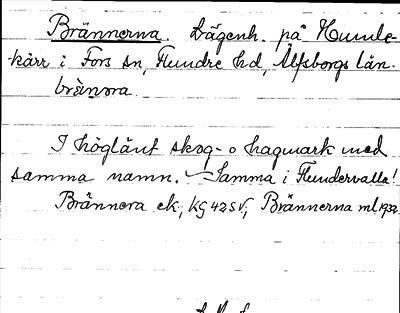 Brännerna. Lägenh. på Humle-
kärr i Fors sn, Flundre hd, Älfsborgs län.
brànnra.
I höglänt skog- o hagmark med
samma namn. – Samma i Flundervalla!
Brännera ek, KG 42 SV; Brännerna ml. 1932